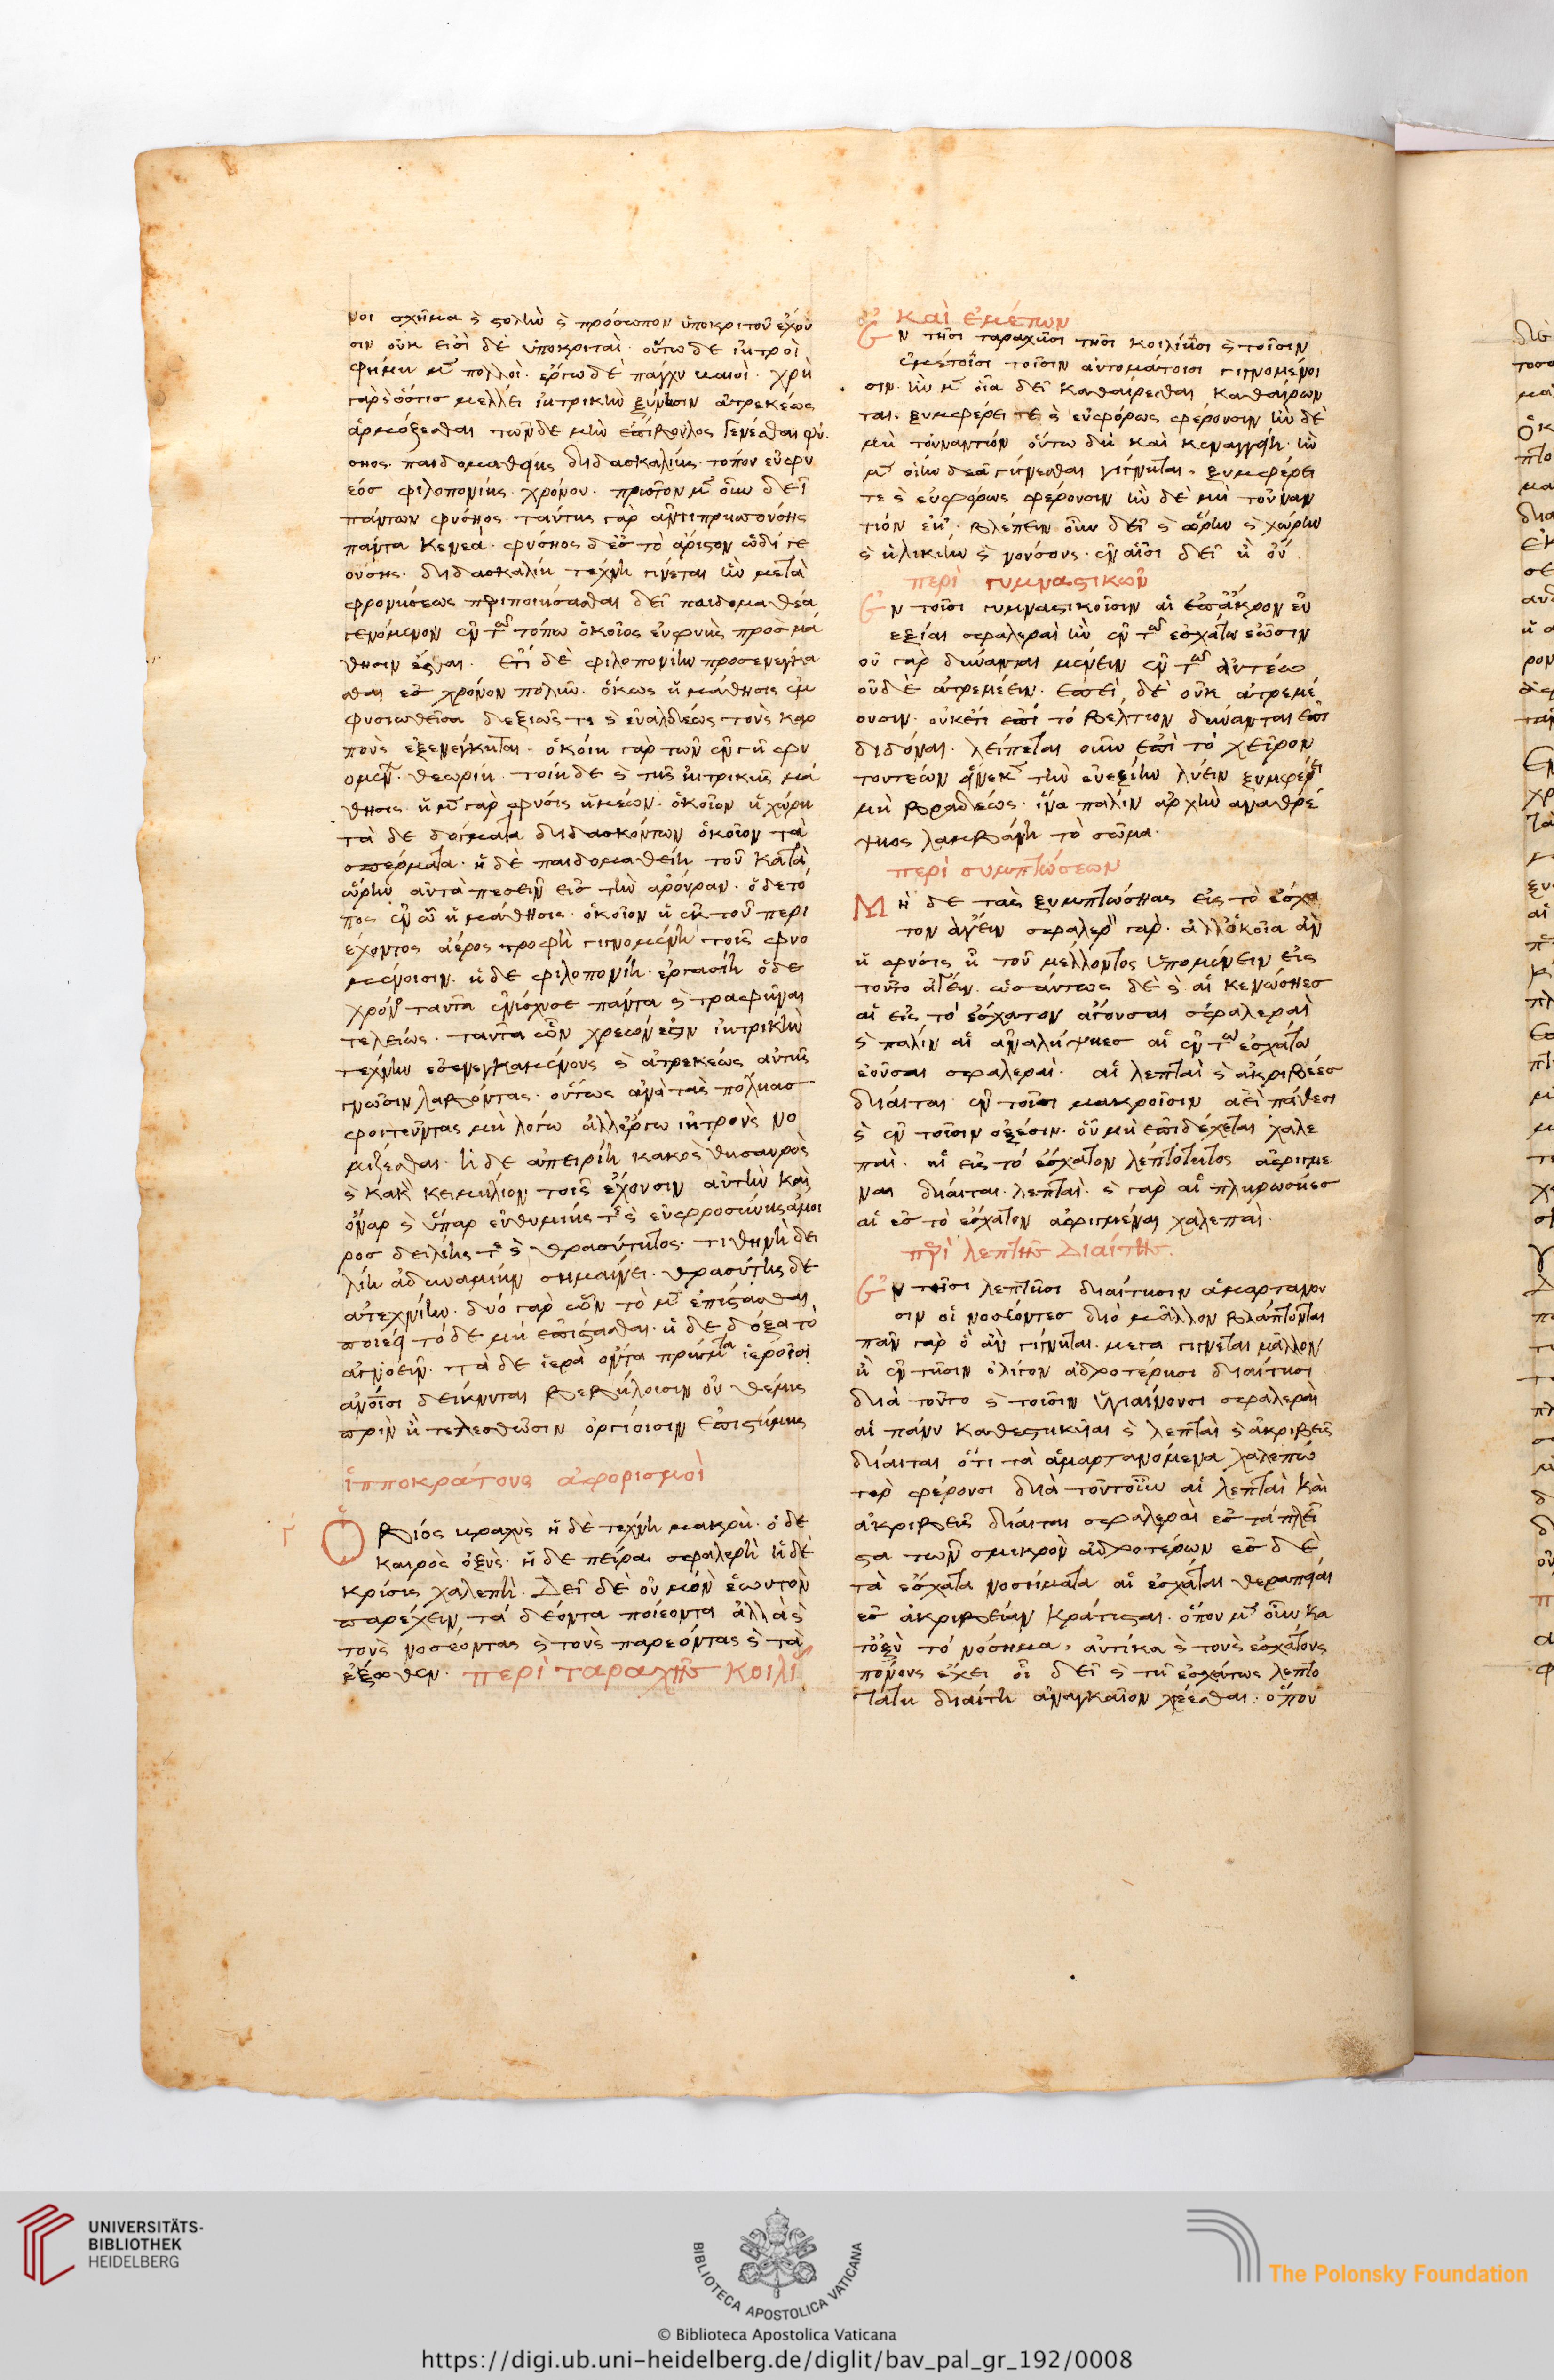 νοι σχῆμα ϗ στολὴν ϗ πρόσωπον ὑποκριτοῦ ἔχου
σιν οὐκ εἰσὶ δὲ ὑποκριταὶ· οὕτω δὲ ἰητροὶ
φήμη μὲν πολλοὶ· ἔργω δὲ πάγχυ βαιοὶ· χρὴ
γὰρ ὅστις μέλλει ἰητρικὴν ξύνεσιν ἀτρεκέως
ἁρμόξεσθαι τῶνδε μὶν ἐπήβολος γενέσθαι φύ
σηος· παιδομαθίης διδασκαλίης· τόπου εὐφυ
εός φιλοπονίης· χρόνου· πρῶτον μὲν οὖν δεῖ
πάντων φύσηος· ταύτης γὰρ ἀντιπρησσούσης
πάντα κενεά· φύσηος δ ἐς τὸ ἄριστον ὡδηγε
ούσης· διδασκαλίη τέχνη γίνεται ἣν μετὰ
φρονήσεως περιποιήσασθαι δεῖ παιδομαθέα
γενόμενον ἐν τῶ τόπω ὁκοῖος εὐφυὴς προσμά
θησιν ἔσται· ἔτι δὲ φιλοπονίην προσενέγκα
σθαι ἐς χρόνον πολὺν· ὅκως ἡ μάθησις ἐμ
φυσιωθεῖσα δεξιῶς τε ϗ εὐαλδέως τοὺς καρ
ποὺς ἐξενέγκηται· ὁκοίη γὰρ τῶν ἐν γῆ φυ
ομένων θεωρίη· τοίηδε ϗ τῆς ἰητρικῆς μά
θησις· ἡ μὲν γὰρ φύσις ἡμέων· ὁκοῖον ἡ χώρη
τὰ δὲ δόγματα διδασκόντων ὁκοῖον τὰ
σπέρματα· ἡ δὲ παιδομαθείη τοῦ κατὰ
ὥρην αὐτὰ πεσεῖν εἰς τὴν ἄρουραν· ὁ δὲ τό
πος ἐν ᾧ ἡ μάθησις· ὁκοῖον ἡ ἐκ τοῦ περι
έχοντος ἀέρος τροφὴ γιγνομένη τοῖς φυο
μένοισιν· ἡ δὲ φιλοπονίη· ἐργασίη ὁ δὲ
χρόνος ταῦτα ἐνίσχυσε πάντα ϗ τραφῆναι
τελείως· ταῦτα ὦν χρεὼν ἐς τὴν ἰητρικὴν
τέχνην ἐσενεγκαμένους ϗ ἀτρεκέως αὐτῆς
γνῶσιν λαβόντας· οὕτως ἀνὰ τὰς πόλιας
φοιτεῦντας μὴ λόγω ἀλλ ἔργω ἰητροὺς νο
μίζεσθαι· ἡ δὲ ἀπειρίη κακὸς θησαυρὸς
ϗ κακὸν κειμήλιον τοῖς ἔχουσιν αὐτὴν καὶ
ὄναρ ϗ ὕπαρ εὐθυμίης τε ϗ εὐφροσύνης ἄμοι
ρος δειλίης τε ϗ θρασύτητος· τιθήνη δει
λίη ἀδυναμίην σημαίνει· θρασύτης δὲ
ἀτεχνίην· δύο γὰρ ὦν τὸ μὲν ἐπίστασθαι
ποιέει τὸ δὲ μὴ ἐπίστασθαι· ἡ δὲ δόξα τὸ
ἀγνοεῖν· τὰ δὲ ἱερὰ ὄντα πρήγματα ἱεροῖσι
ἀνοῖσι δείκνυται βεβήλοισιν οὐ θέμις
πρὶν ἢ τελεσθῶσιν ὀργίοισιν ἐπιστήμης
ἱπποκράτους ἀφορισμοὶ
Ὁ βίος βραχὺς ἡ δὲ τέχνη μακρὴ· ὁ δὲ
καιρὸς ὀξὺς· ἡ δὲ πεῖρα σφαλερὴ ἡ δὲ
κρίσις χαλεπὴ. Δεῖ δὲ οὐ μόνον ἑωυτὸν
παρέχειν τὰ δέοντα ποιέοντα ἀλλὰ ϗ
τοὺς νοσέοντας ϗ τοὺς παρεόντας ϗ τὰ
ἔξωθεν· περὶ ταραχῆς κοιλί
ας καὶ ἐμέτων
Ἐν τῆσι ταραχῆσι τῆσι κοιλίησι ϗ τοῖσιν
ἐμέτοισι τοῖσιν αὐτομάτοισι γιγνομένοι
σιν· ἢν μὲν οἷα δεῖ καθαίρεσθαι καθαίρων
ται· ξυμφέρει τε ϗ εὐφόρως φέρουσιν ἢν δὲ
μὴ τοὐναντίον οὕτω δὴ καὶ κεναγγείη· ἢν
μὲν οἵην δεῖ γίγνεσθαι γίγνηται· ξυμφέρει
τε ϗ εὐφόρως φέρουσιν ἢν δὲ μὴ τοὐναν
τίον βλέπειν οὖν δεῖ ϗ ὥρην ϗ χώρην
ϗ ἡλικίην ϗ νούσους· ἐν αἷσι δεῖ ἢ οὔ·
περὶ γυμναστικῶν
Ἐν τοῖσι γυμναστικοῖσιν αἱ ἐπ ἄκρον εὐ
εξίαι σφαλεραὶ ἢν ἐν τῶ ἐσχάτω ἐῶσιν
οὐ γὰρ δύνανται μένειν ἐν τῶ αὐτέω
οὐδὲ ἀτρεμέειν· ἐπεὶ δὲ οὐκ ἀτρεμέ
ουσιν· οὐκέτι ἐπὶ τὸ βέλτιον δύνανται ἐπι
διδόναι· λείπεται οὖν ἐπὶ τὸ χεῖρον
τουτέων εἵνεκεν τὴν εὐεξίην λύειν ξυμφέρει
μὴ βραδέως· ἵνα πάλιν ἀρχὴν ἀναθρέ
ψιος λαμβάνη τὸ σῶμα·
περὶ συμπτώσεων
Μὴ δὲ τὰς ξυμπτώσιας εἰς τὸ ἔσχα
τον ἄγειν σφαλερὸν γάρ· ἀλλ ὁκοῖα ἂν
ἡ φύσις ᾖ τοῦ μέλλοντος ὑπομένειν εἰς
τοῦτο ἄγειν· ὡσαύτως δὲ ϗ αἱ κενώσιες
αἱ εἰς τὸ ἔσχατον ἄγουσαι σφαλεραὶ
ϗ πάλιν αἱ ἀναλήψιες αἱ ἐν τῶ ἐσχάτω
ἐοῦσαι σφαλεραὶ· αἱ λεπταὶ ϗ ἀκριβέες
δίαιται ἐν τοῖσι μακροῖσιν αἰεὶ πάθεσι
ϗ ἐν τοῖσιν ὀξέσιν· οὗ μὴ ἐπιδέχεται χαλε
παὶ· αἱ εἰς τὸ ἔσχατον λεπτότητος ἀφιγμέ
ναι δίαιται λεπταὶ· ϗ γὰρ αἱ πληρώσιες
αἱ ἐς τὸ ἔσχατον ἀφιγμέναι χαλεπαὶ·
περὶ λεπτῆς διαίτης
Ἐν τοῖσι λεπτῆσι διαίτησιν ἁμαρτάνου
σιν οἱ νοσέοντες διὸ μᾶλλον βλάπτονται
πᾶν γὰρ ὃ ἂν γίγνηται· μέγα γίγνεται μᾶλλον
ἢ ἐν τῆσιν ὀλίγον ἁδροτέρησι διαίτησι
διὰ τοῦτο ϗ τοῖσιν ὑγιαίνουσι σφαλεραὶ
αἱ πάνυ καθεστηκυῖαι ϗ λεπταὶ ϗ ἀκριβεῖς
δίαιται ὅτι τὰ ἁμαρτανόμενα χαλεπώ
τερον φέρουσι διὰ τοῦτο οὖν αἱ λεπταὶ καὶ
ἀκριβεῖς δίαιται σφαλεραὶ ἐς τὰ πλεῖ
στα τῶν σμικρὸν ἁδροτέρων ἐς δὲ
τὰ ἔσχατα νοσήματα αἱ ἔσχαται θεραπεῖαι
ἐς ἀκριβείαν κράτισται· ὅπου μὲν οὖν κα
τόξυ τὸ νόσημα, αὐτίκα ϗ τοὺς ἐσχάτους
πόνους ἔχει οἷ δεῖ ϗ τῆ ἐσχάτως λεπτο
τάτη διαίτη ἀναγκαῖον χρέεσθαι· ὅπου
UNIVERSITÄTS-
BIBLIOTHEK
HEIDELBERG
BIBLIOTECA APOSTOLICA VATICANA
The Polonsky Foundation
© Biblioteca Apostolica Vaticana
https://digi.ub.uni-heidelberg.de/diglit/bav_pal_gr_192/0008